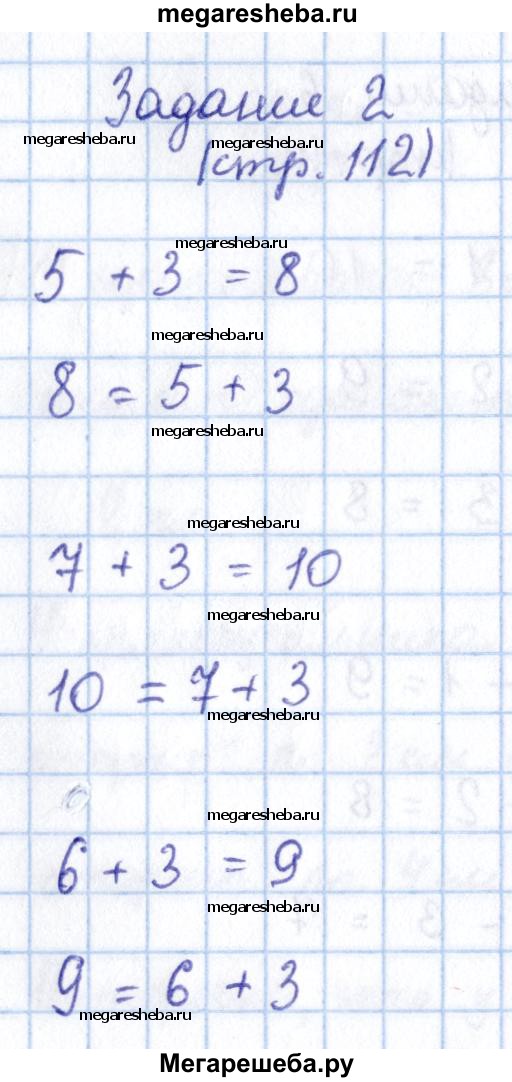 megaresheba.ru
Задание 2
megaresheba.ru megaresheba.ru
(стр. 112)
megaresheba.ru
5 + 3 = 8
megaresheba.ru
8 = 5 + 3
megaresheba.ru
megaresheba.ru
7 + 3 = 10
megaresheba.ru
10 = 7 + 3
megaresheba.ru
megaresheba.ru
6 + 3 = 9
megaresheba.ru
9 = 6 + 3
megaresheba.ru
Мегарешеба.ру